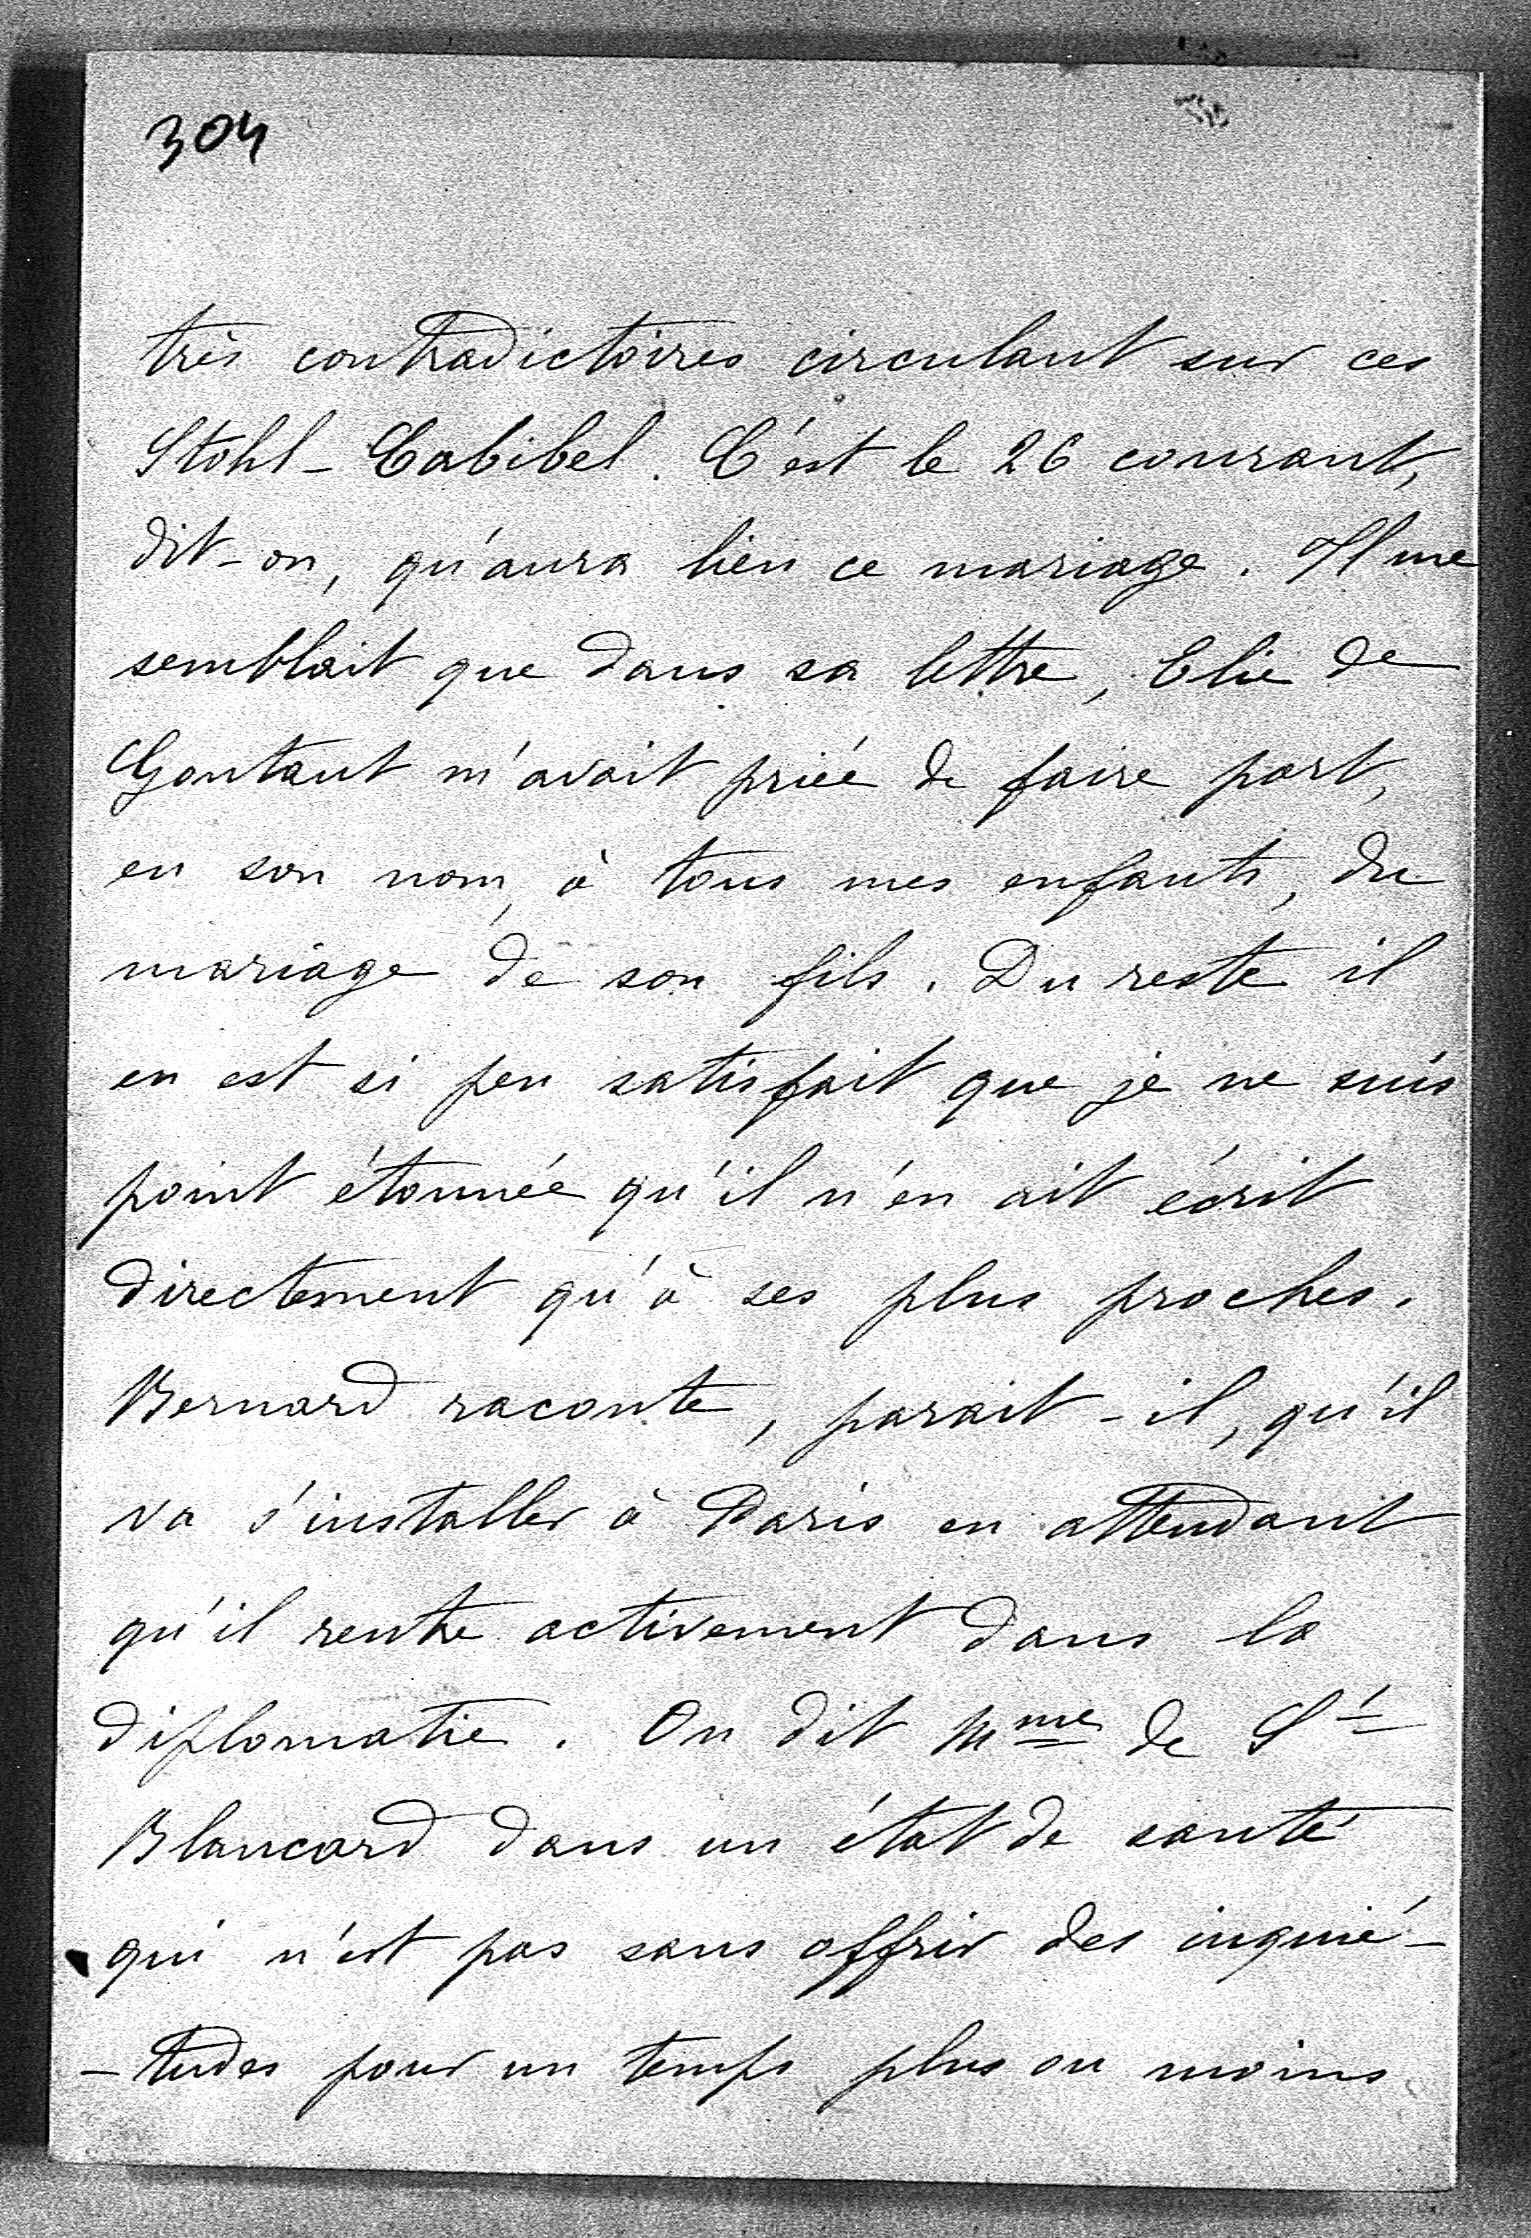 304
très contradictoires circulant sur ces
Stohl - Cabibel. C'est le 26 courant,
dit-on, qu'aura lieu ce mariage. Il me
semblait que dans sa lettre, Elie de
Gontaut m'avait priée de faire part,
en son nom, à tous mes enfants, du
mariage de son fils. Du reste il
en est si peu satisfait que je ne suis
point étonnée qu'il n'en ait écrit
directement qu'à ses plus proches.
Bernard raconte, parait-il, qu'il
va s'installer à Paris en attendant
qu'il rentre activement dans la
diplomatie. On dit Mme de St
Blancard dans un état de santé
qui n'est pas sans offrir des inquié-
-tudes pour un temps plus ou moins